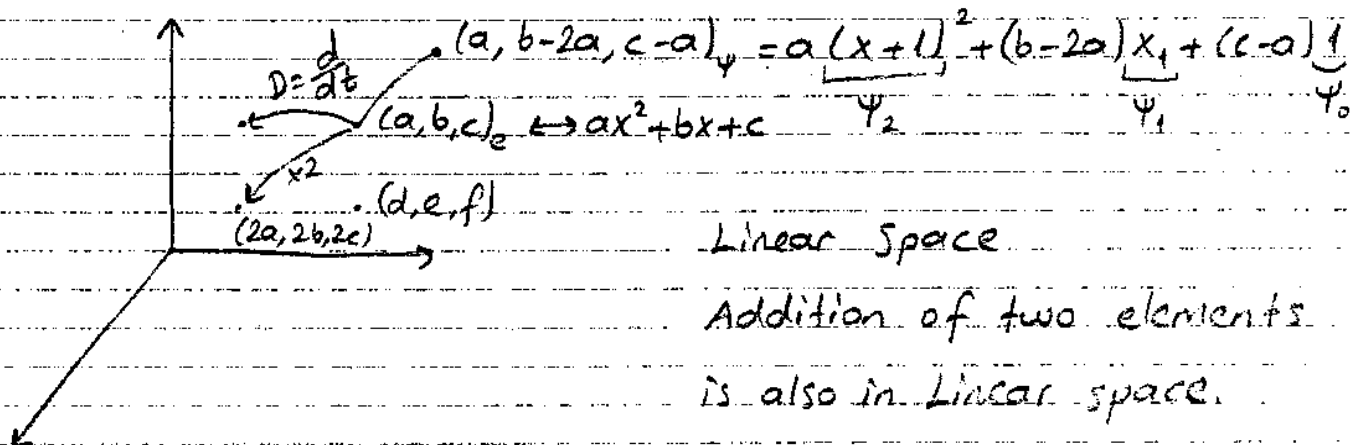 (a, b-2a, c-a)ψ = a (x+1)² + (b-2a) x₁ + (c-a) 1
ψ₂ ψ₁ ψ₀
D = d/dt
(a,b,c)e ↔ ax²+bx+c
x2
(d,e,f)
(2a, 2b, 2c)
Linear Space
Addition of two elements
is also in Linear space.